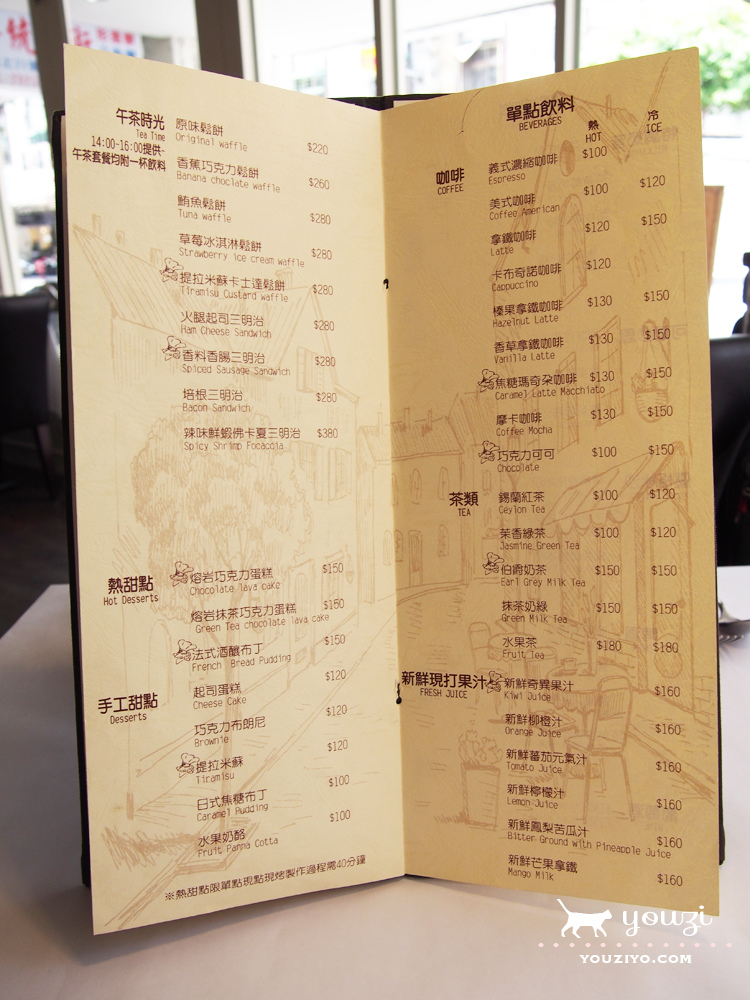 午茶時光
Tea Time
14:00-16:00提供~
午茶套餐均附一杯飲料
原味鬆餅 $220
Original waffle
香蕉巧克力鬆餅 $260
Banana choclate waffle
鮪魚鬆餅 $280
Tuna waffle
草莓冰淇淋鬆餅 $280
Strawberry ice cream waffle
提拉米蘇卡士達鬆餅 $280
Tiramisu Custard waffle
火腿起司三明治 $280
Ham Cheese Sandwich
香料香腸三明治 $280
Spiced Sausage Sandwich
培根三明治 $280
Bacon Sandwich
辣味鮮蝦佛卡夏三明治 $380
Spicy Shrimp Focaccia
熱甜點
Hot Desserts
熔岩巧克力蛋糕 $150
Chocolate lava cake
熔岩抹茶巧克力蛋糕 $150
Green Tea chocolate lava cake
法式酒釀布丁 $150
French Bread Pudding
手工甜點
Desserts
起司蛋糕 $120
Cheese Cake
巧克力布朗尼 $120
Brownie
提拉米蘇 $120
Tiramisu
日式焦糖布丁 $100
Caramel Pudding
水果奶酪 $100
Fruit Panna Cotta
※熱甜點限單點現點現烤製作過程需40分鐘
單點飲料
BEVERAGES
熱 冷
HOT ICE
咖啡
COFFEE
義式濃縮咖啡 $100
Espresso
美式咖啡 $100 $120
Coffee American
拿鐵咖啡 $120 $150
Latte
卡布奇諾咖啡 $120
Cappuccino
榛果拿鐵咖啡 $130 $150
Hazelnut Latte
香草拿鐵咖啡 $130 $150
Vanilla Latte
焦糖瑪奇朵咖啡 $130 $150
Caramel Latte Macchiato
摩卡咖啡 $130 $150
Coffee Mocha
巧克力可可 $100 $150
Chocolate
茶類
TEA
錫蘭紅茶 $100 $120
Ceylon Tea
茉香綠茶 $100 $120
Jasmine Green Tea
伯爵奶茶 $150 $150
Earl Grey Milk Tea
抹茶奶綠 $150 $150
Green Milk Tea
水果茶 $180 $180
Fruit Tea
新鮮現打果汁
FRESH JUICE
新鮮奇異果汁 $160
Kiwi Juice
新鮮柳橙汁 $160
Orange Juice
新鮮蕃茄元氣汁 $160
Tomato Juice
新鮮檸檬汁 $160
Lemon Juice
新鮮鳳梨苦瓜汁 $160
Bitter Ground with Pineapple Juice
新鮮芒果拿鐵 $160
Mango Milk
youzi
YOUZIYO.COM